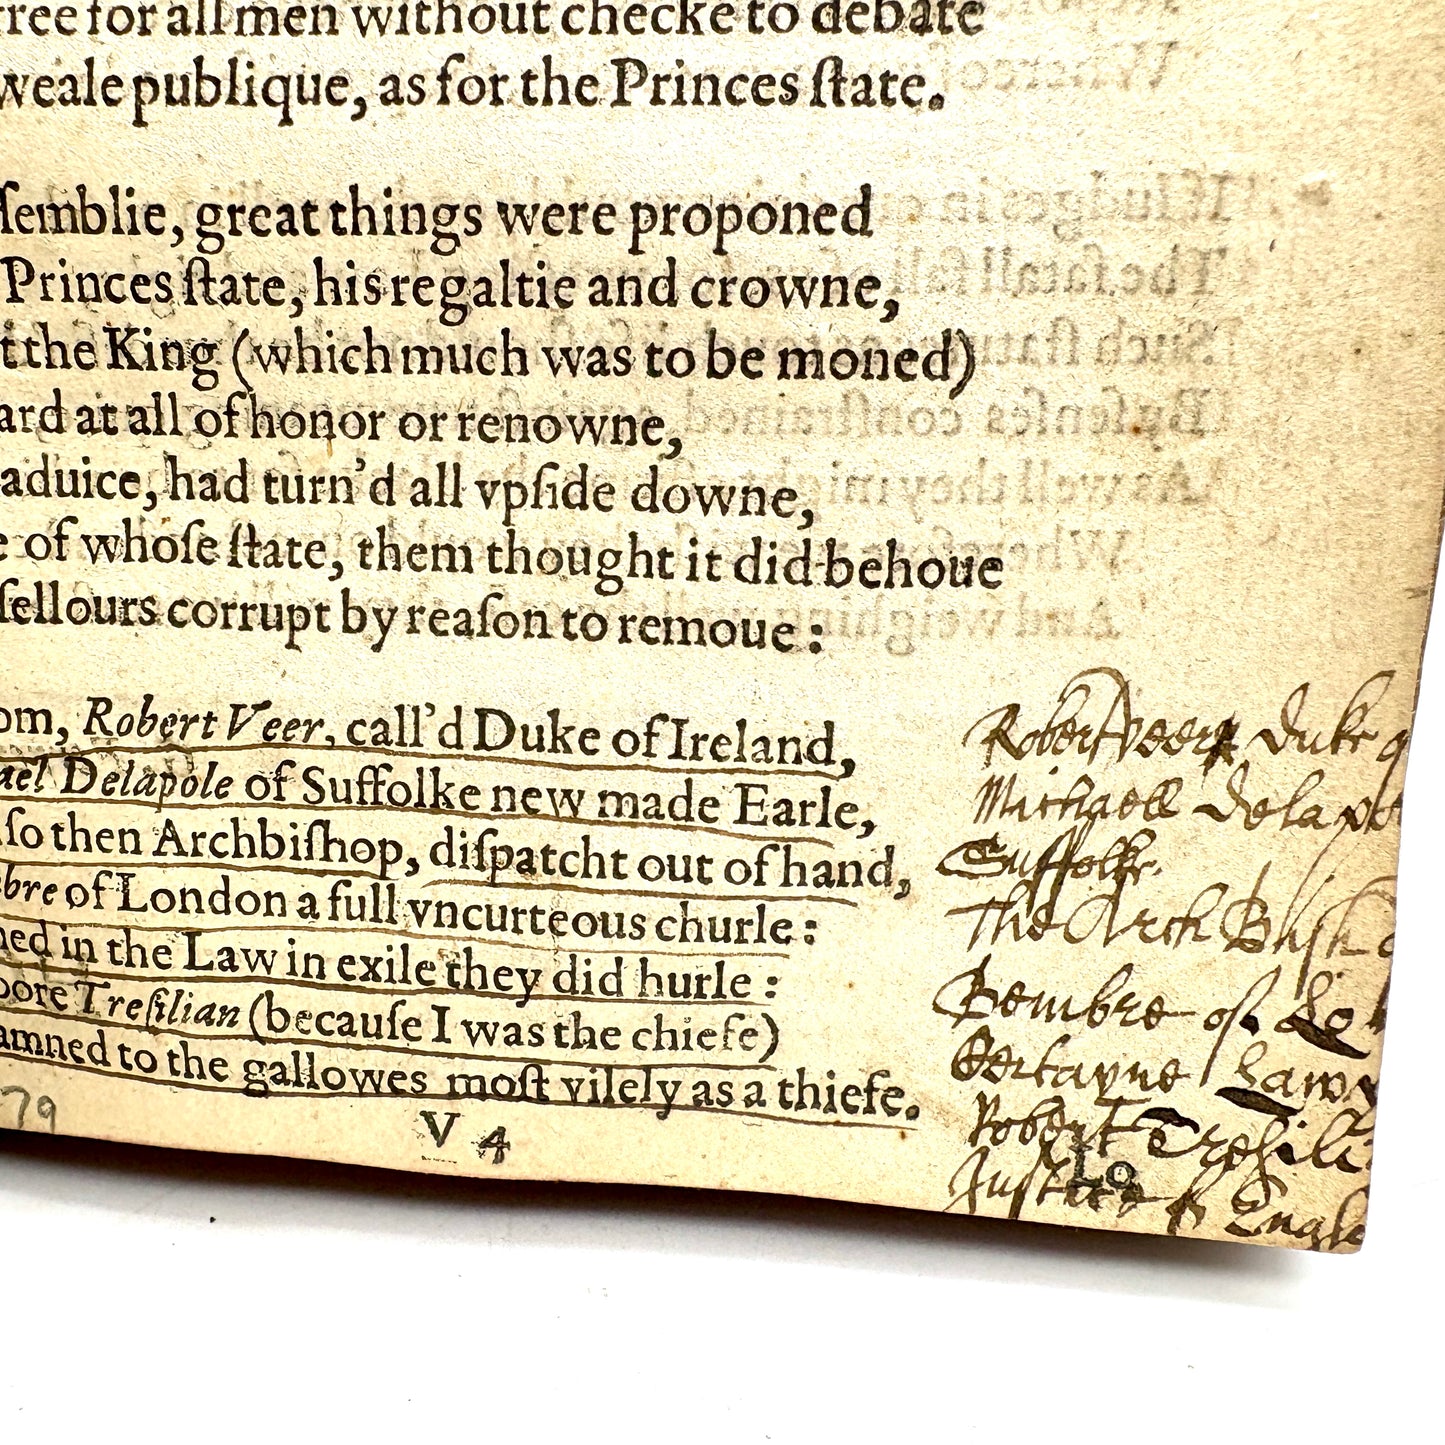 free for all men without checke to debate
weale publique, as for the Princes ſtate.
ſſemblie, great things were proponed
Princes ſtate, his regaltie and crowne,
t the King (which much was to be moned)
ard at all of honor or renowne,
aduice, had turn'd all vpſide downe,
e of whoſe ſtate, them thought it did behoue
ſellours corrupt by reaſon to remoue:
om, Robert Veer, call'd Duke of Ireland,
ael Delapole of Suffolke new made Earle,
ſo then Archbiſhop, diſpatcht out of hand,
bre of London a full vncurteous churle:
ned in the Law in exile they did hurle:
oore Treſilian (becauſe I was the chiefe)
amned to the gallowes moſt vilely as a thiefe.
79
V 4
Lo
Robert veer Duke
Michaell Dela po
Suffolke.
The Arch Bish
Bembre of Lo
Certayne Lawy
Robert Tresili
Justice of Engl